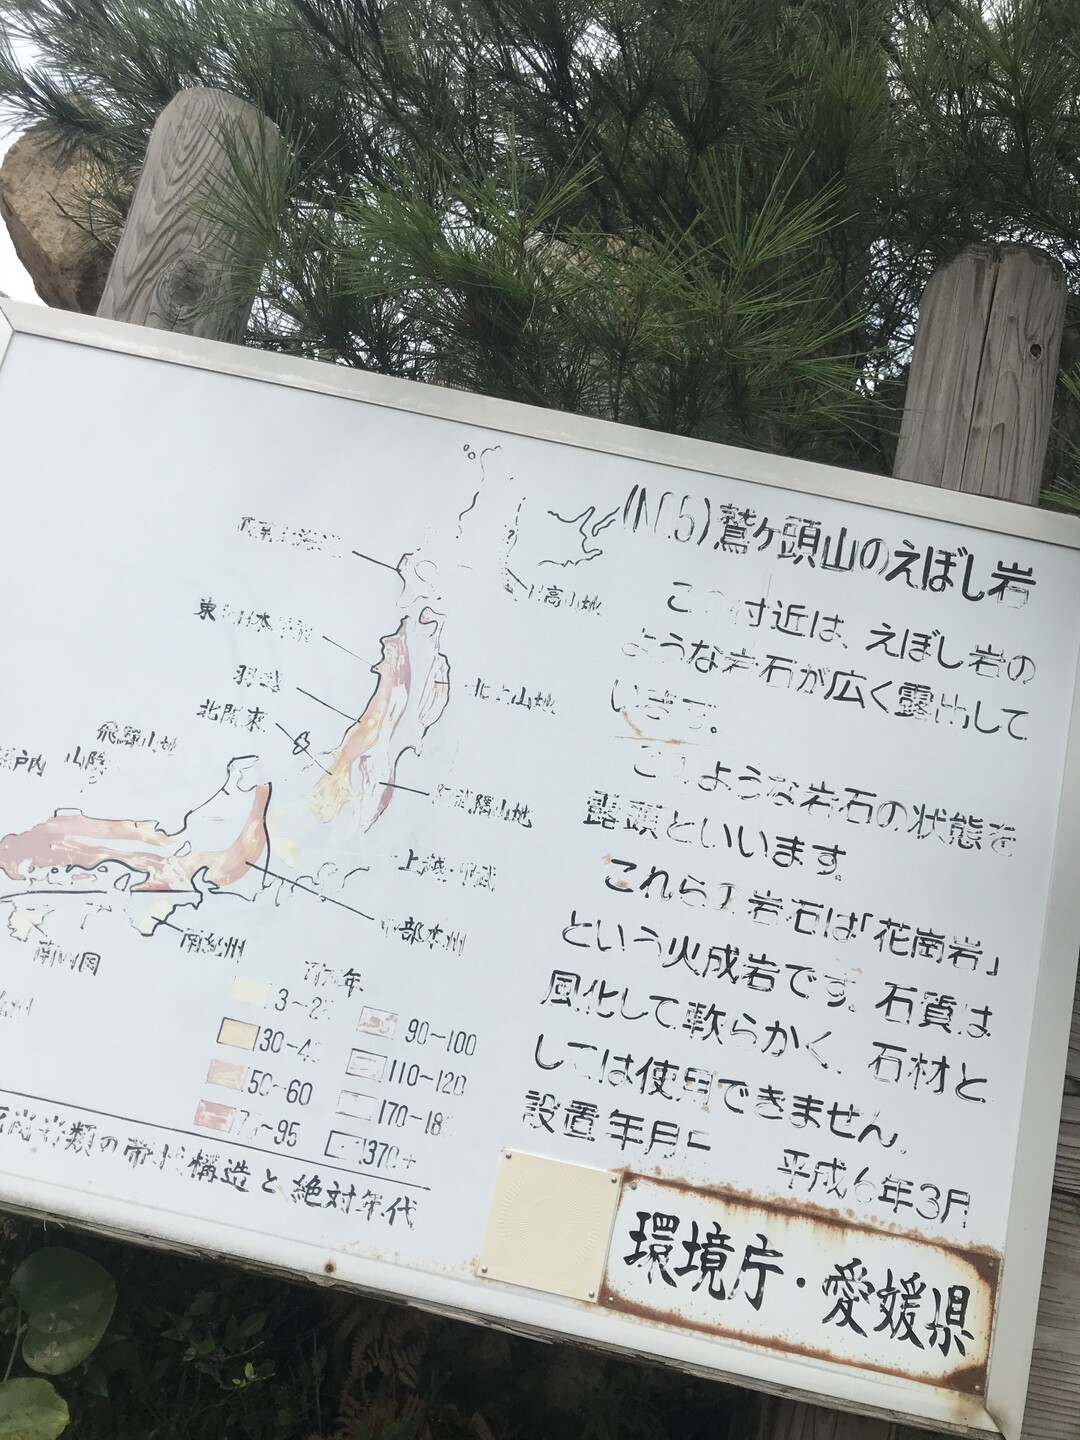 (No.5)鷲ヶ頭山のえぼし岩
この付近は、えぼし岩の
ような岩石が広く露出して
います。
このような岩石の状態を
露頭といいます。
これらの岩石は「花崗岩」
という火成岩です。石質は
風化して軟らかく、石材と
しては使用できません。
設置年月日
平成6年3月
環境庁・愛媛県
日高山地
羽越
北関東
北上山地
飛騨山地
山陰
阿武隈山地
中部本州
南紀州
30~4
90~100
50~60
110~120
~95
370+
構造と絶対年代